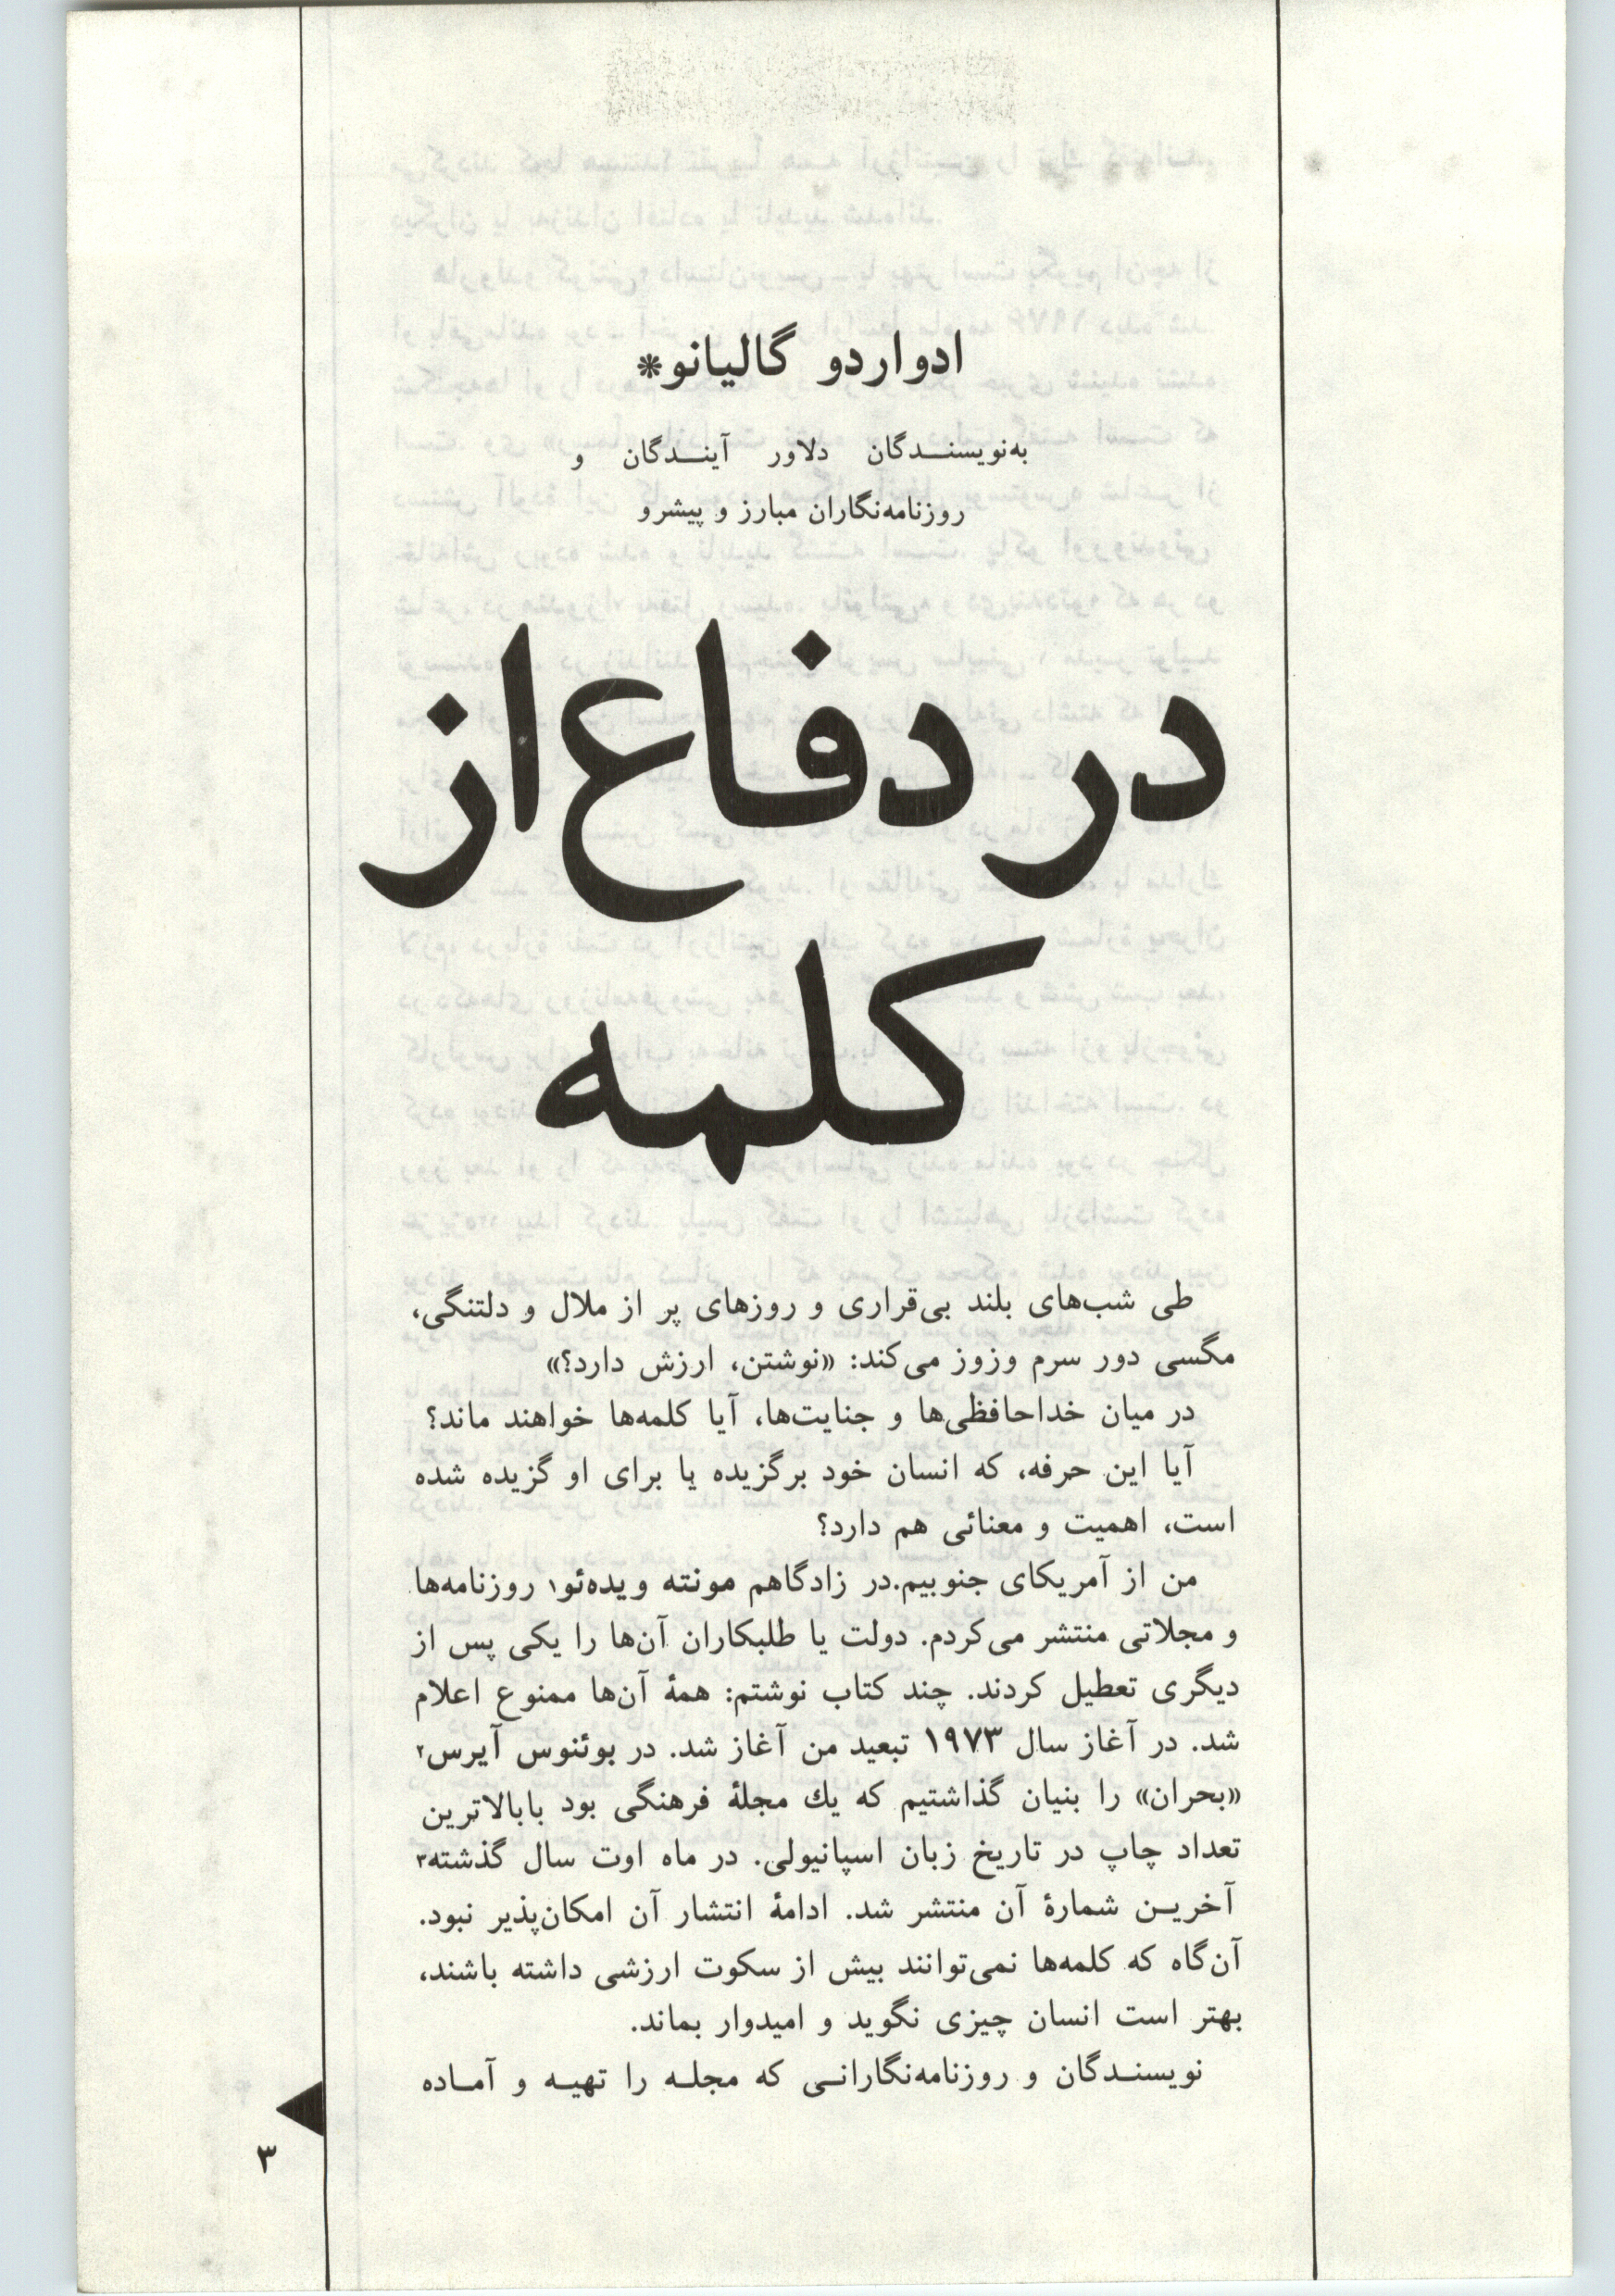 ادواردو گالیانو*
به‌نویسندگان دلاور آیندگان و
روزنامه‌نگاران مبارز و پیشرو
در دفاع از
کلمه
طی شب‌های بلند بی‌قراری و روزهای پر از ملال و دلتنگی،
مگسی دور سرم وزوز می‌کند: «نوشتن، ارزش دارد؟»
در میان خداحافظی‌ها و جنایت‌ها، آیا کلمه‌ها خواهند ماند؟
آیا این حرفه، که انسان خود برگزیده یا برای او گزیده شده
است، اهمیت و معنائی هم دارد؟
من از آمریکای جنوبیم. در زادگاهم مونته ویده‌ئو۱ روزنامه‌ها
و مجلاتی منتشر می‌کردم. دولت یا طلبکاران آن‌ها را یکی پس از
دیگری تعطیل کردند. چند کتاب نوشتم: همهٔ آن‌ها ممنوع اعلام
شد. در آغاز سال ۱۹۷۳ تبعید من آغاز شد. در بوئنوس آیرس۲
«بحران» را بنیان گذاشتیم که یك مجلهٔ فرهنگی بود بابالاترین
تعداد چاپ در تاریخ زبان اسپانیولی. در ماه اوت سال گذشته۳
آخرین شمارهٔ آن منتشر شد. ادامهٔ انتشار آن امکان‌پذیر نبود.
آن‌گاه که کلمه‌ها نمی‌توانند بیش از سکوت ارزشی داشته باشند،
بهتر است انسان چیزی نگوید و امیدوار بماند.
نویسندگان و روزنامه‌نگارانی که مجله را تهیه و آماده
۳